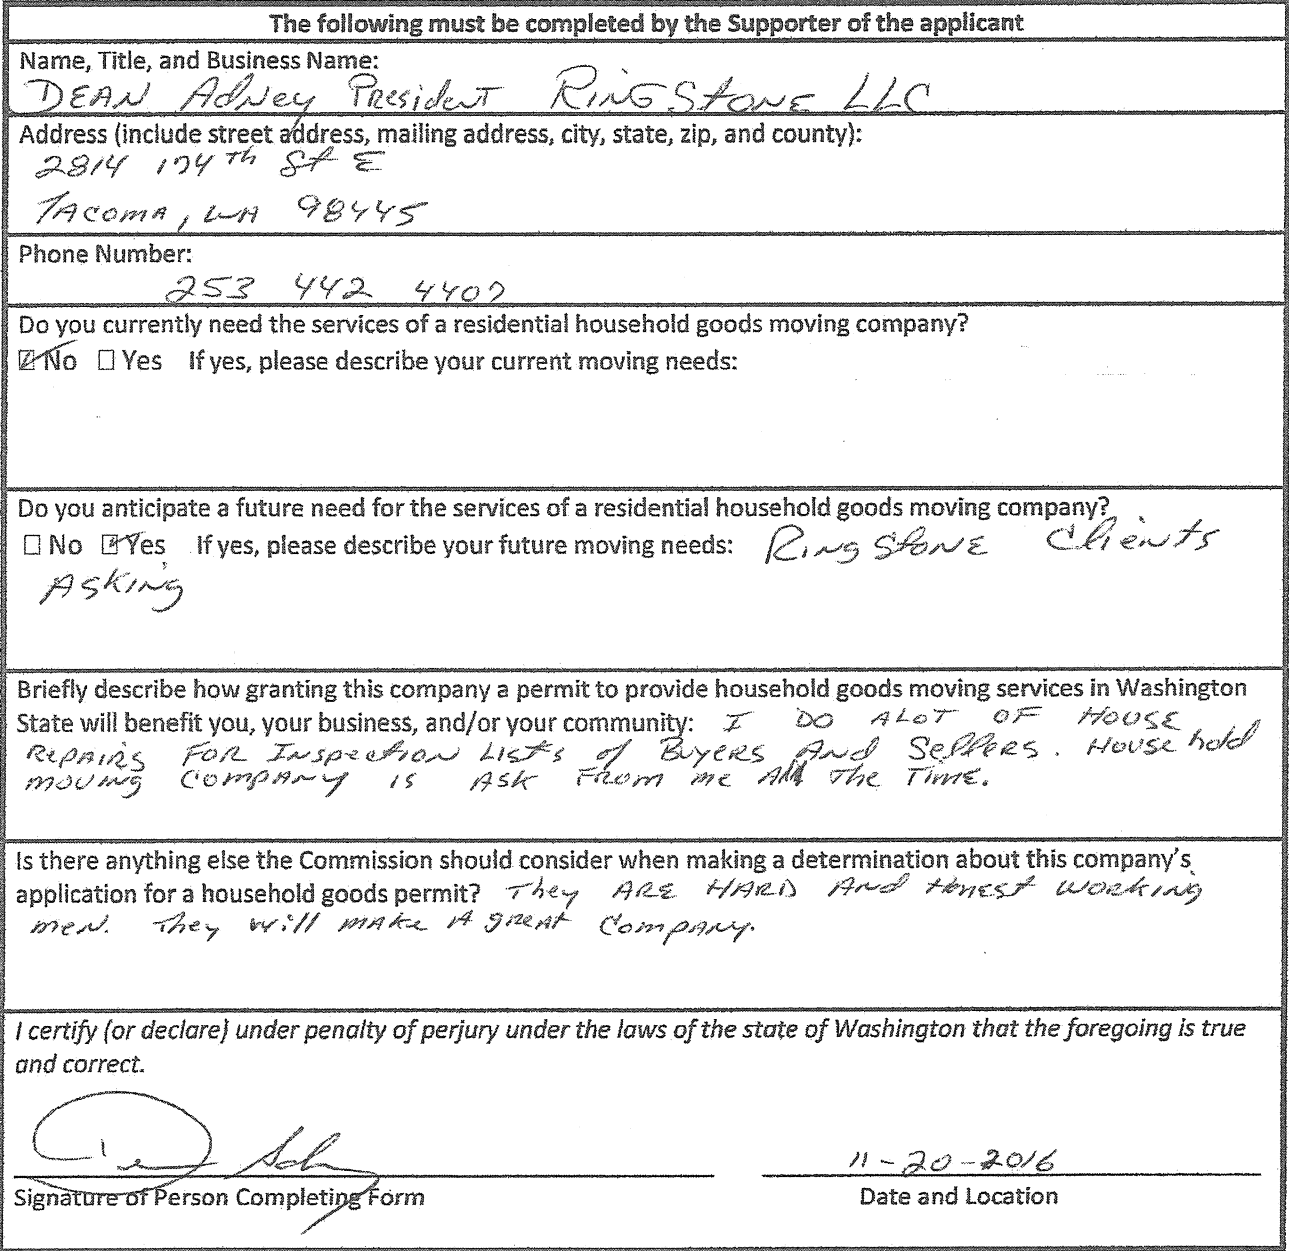 The following must be completed by the Supporter of the applicant
Name, Title, and Business Name:
DEAN Adney President RingStone LLC
Address (include street address, mailing address, city, state, zip, and county):
2814 174th St E
TACOMA, WA 98445
Phone Number:
253 442 4407
Do you currently need the services of a residential household goods moving company?
☑ No ☐ Yes If yes, please describe your current moving needs:
Do you anticipate a future need for the services of a residential household goods moving company?
☐ No ☑ Yes If yes, please describe your future moving needs: RingStone Clients
Asking
Briefly describe how granting this company a permit to provide household goods moving services in Washington
State will benefit you, your business, and/or your community: I DO ALOT OF HOUSE
REPAIRS FOR INSPECTION LISTS of BUYERS AND SELLERS. HOUSE hold
moving COMPANY is ASK FROM me All The TIME.
Is there anything else the Commission should consider when making a determination about this company's
application for a household goods permit? They ARE HARD AND HONEST WORKING
men. They will MAKE A great COMPANY.
I certify (or declare) under penalty of perjury under the laws of the state of Washington that the foregoing is true
and correct.
11-20-2016
Signature of Person Completing Form Date and Location